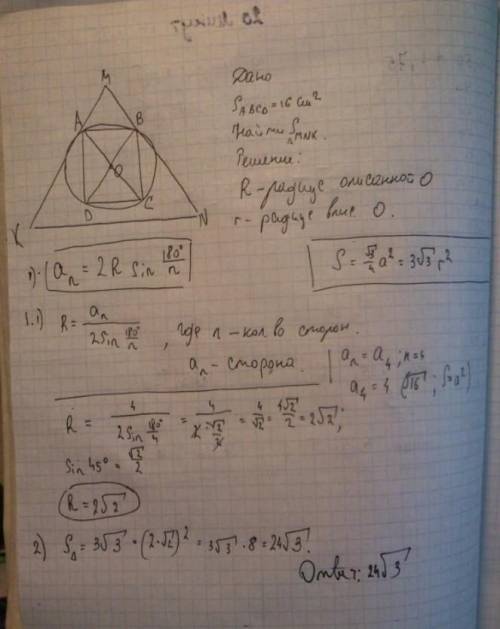 M
A B
O
D C
K N
Дано
S_ABCD = 16 см²
Найти S_MNK.
Решение:
R - радиус описанной O
r - радиус впис O.
1). a_n = 2R sin 180°/n
S = √3/4 a² = 3√3 r²
1.1) R = a_n / (2 sin 180°/n), где n - кол во сторон.
a_n - сторона.
a_n = a_4; n = 4
a_4 = 4 (√16; S = a²)
R = 4 / (2 sin 180°/4) = 4 / (2·√2/2) = 4/√2 = 4√2/2 = 2√2;
sin 45° = √2/2
R = 2√2
2) S_Δ = 3√3 · (2·√2)² = 3√3 · 8 = 24√3.
Ответ: 24√3